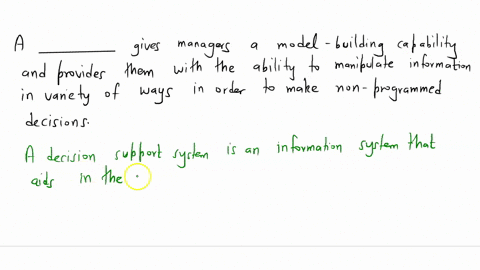 A __________ gives managers a model-building capability
and provides them with the ability to manipulate information
in variety of ways in order to make non-programmed
decisions.
A decision support system is an information system that
aids in the